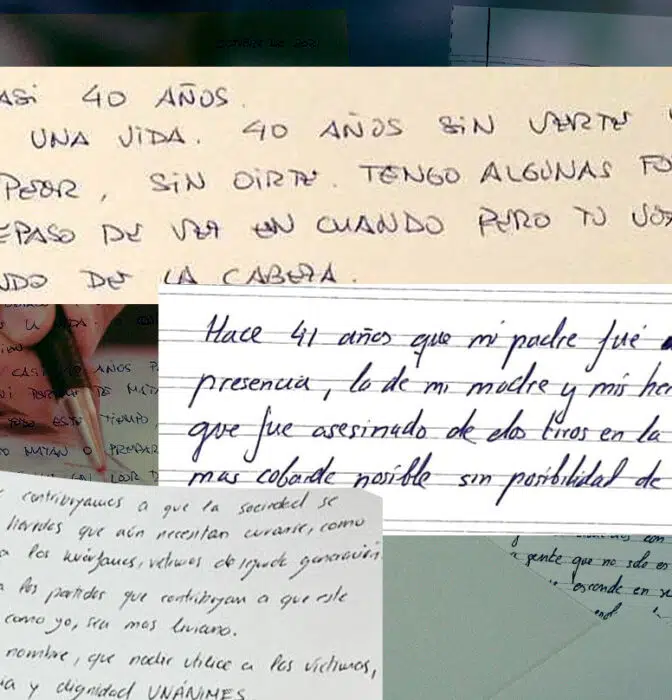 40 AÑOS.
UNA VIDA. 40 AÑOS SIN VERTE
PEOR, SIN OIRTE. TENGO ALGUNAS FO
EPASO DE VEZ EN CUANDO PERO TU VOZ
NDO DE LA CABEZA.
Hace 41 años que mi padre fué
presencia, la de mi madre y mis her
que fue asesinado de dos tiros en la
mas cobarde posible sin posibilidad de
AÑOS
DE
ESTE TIEMPO,
MATAN O
contribuyamos a que la sociedad se
heridas que aún necesitan curarse, como
a los huérfanos, víctimas de segunda generación.
a los partidos que contribuyan a que este
como yo, sea mas liviano.
nombre, que nadie utilice a las víctimas,
y dignidad UNÁNIMES
con
gente que no solo es
esconde en su